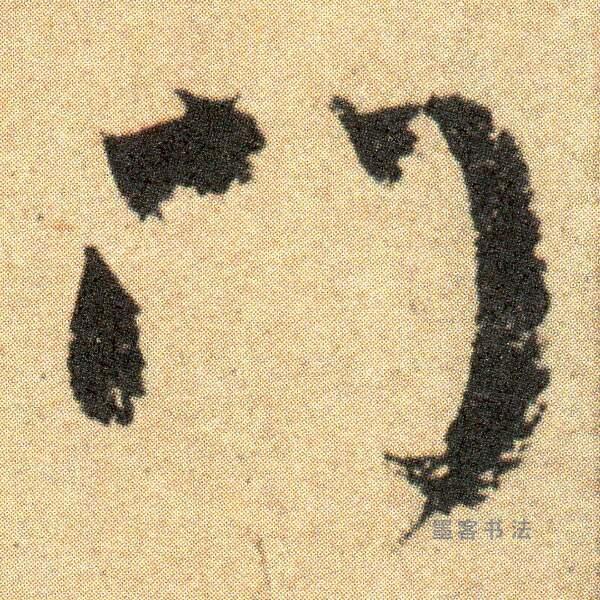 門
墨客书法